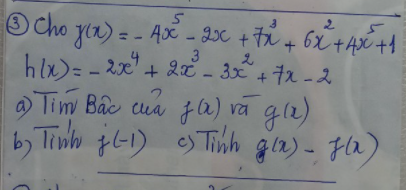 ③ Cho f(x) = - 4x⁵ - 2x + 7x³ + 6x² + 4x⁵ + 1
h(x) = - 2x⁴ + 2x³ - 3x² + 7x - 2
a) Tìm Bậc của f(x) và g(x)
b) Tính f(-1) c) Tính g(x) - f(x)